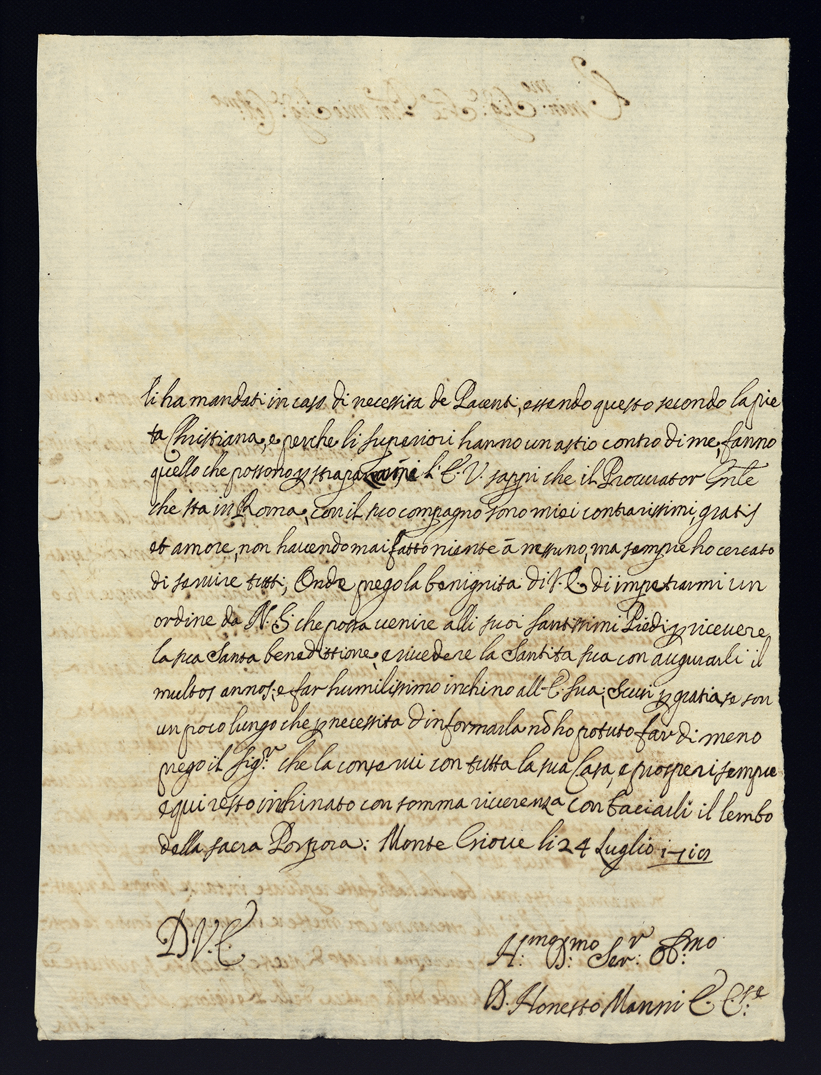 li ha mandati in caso di necessita de Parenti, essendo questo secondo la pie
ta Christiana, e perche li superiori hanno un astio contro di me, fanno
quello che possono li E. V. sappi che il Procurator Gn̄le
che sta in Roma, con il suo compagno sono miei contrarissimi, gratis
et amore, non havendo mai fatto niente à nessuno, ma sempre ho cercato
di servire tutti, Onde prego la benignita di V. E. di impetrarmi un
ordine da N. S. che possa venire alli suoi Santissimi Piedi ricevere
la sua Santa benedittione, e rivedere la Santita sua con augurarli il
multos annos, e far humilissimo inchino all'E. sua, Scusi gratia se son
un poco lungo che necessita d'informarla nō ho potuto far di meno
prego il Sig.r che la conservi con tutta la sua Casa, e prosperi sempre
e qui resto inchinato con somma riverenza con baciarli il lembo
della sacra Porpora: Monte Giove li 24 Luglio
D V. E.
H.mo D.mo Ser.r Ob.mo
D. Honesto Manni E. C.